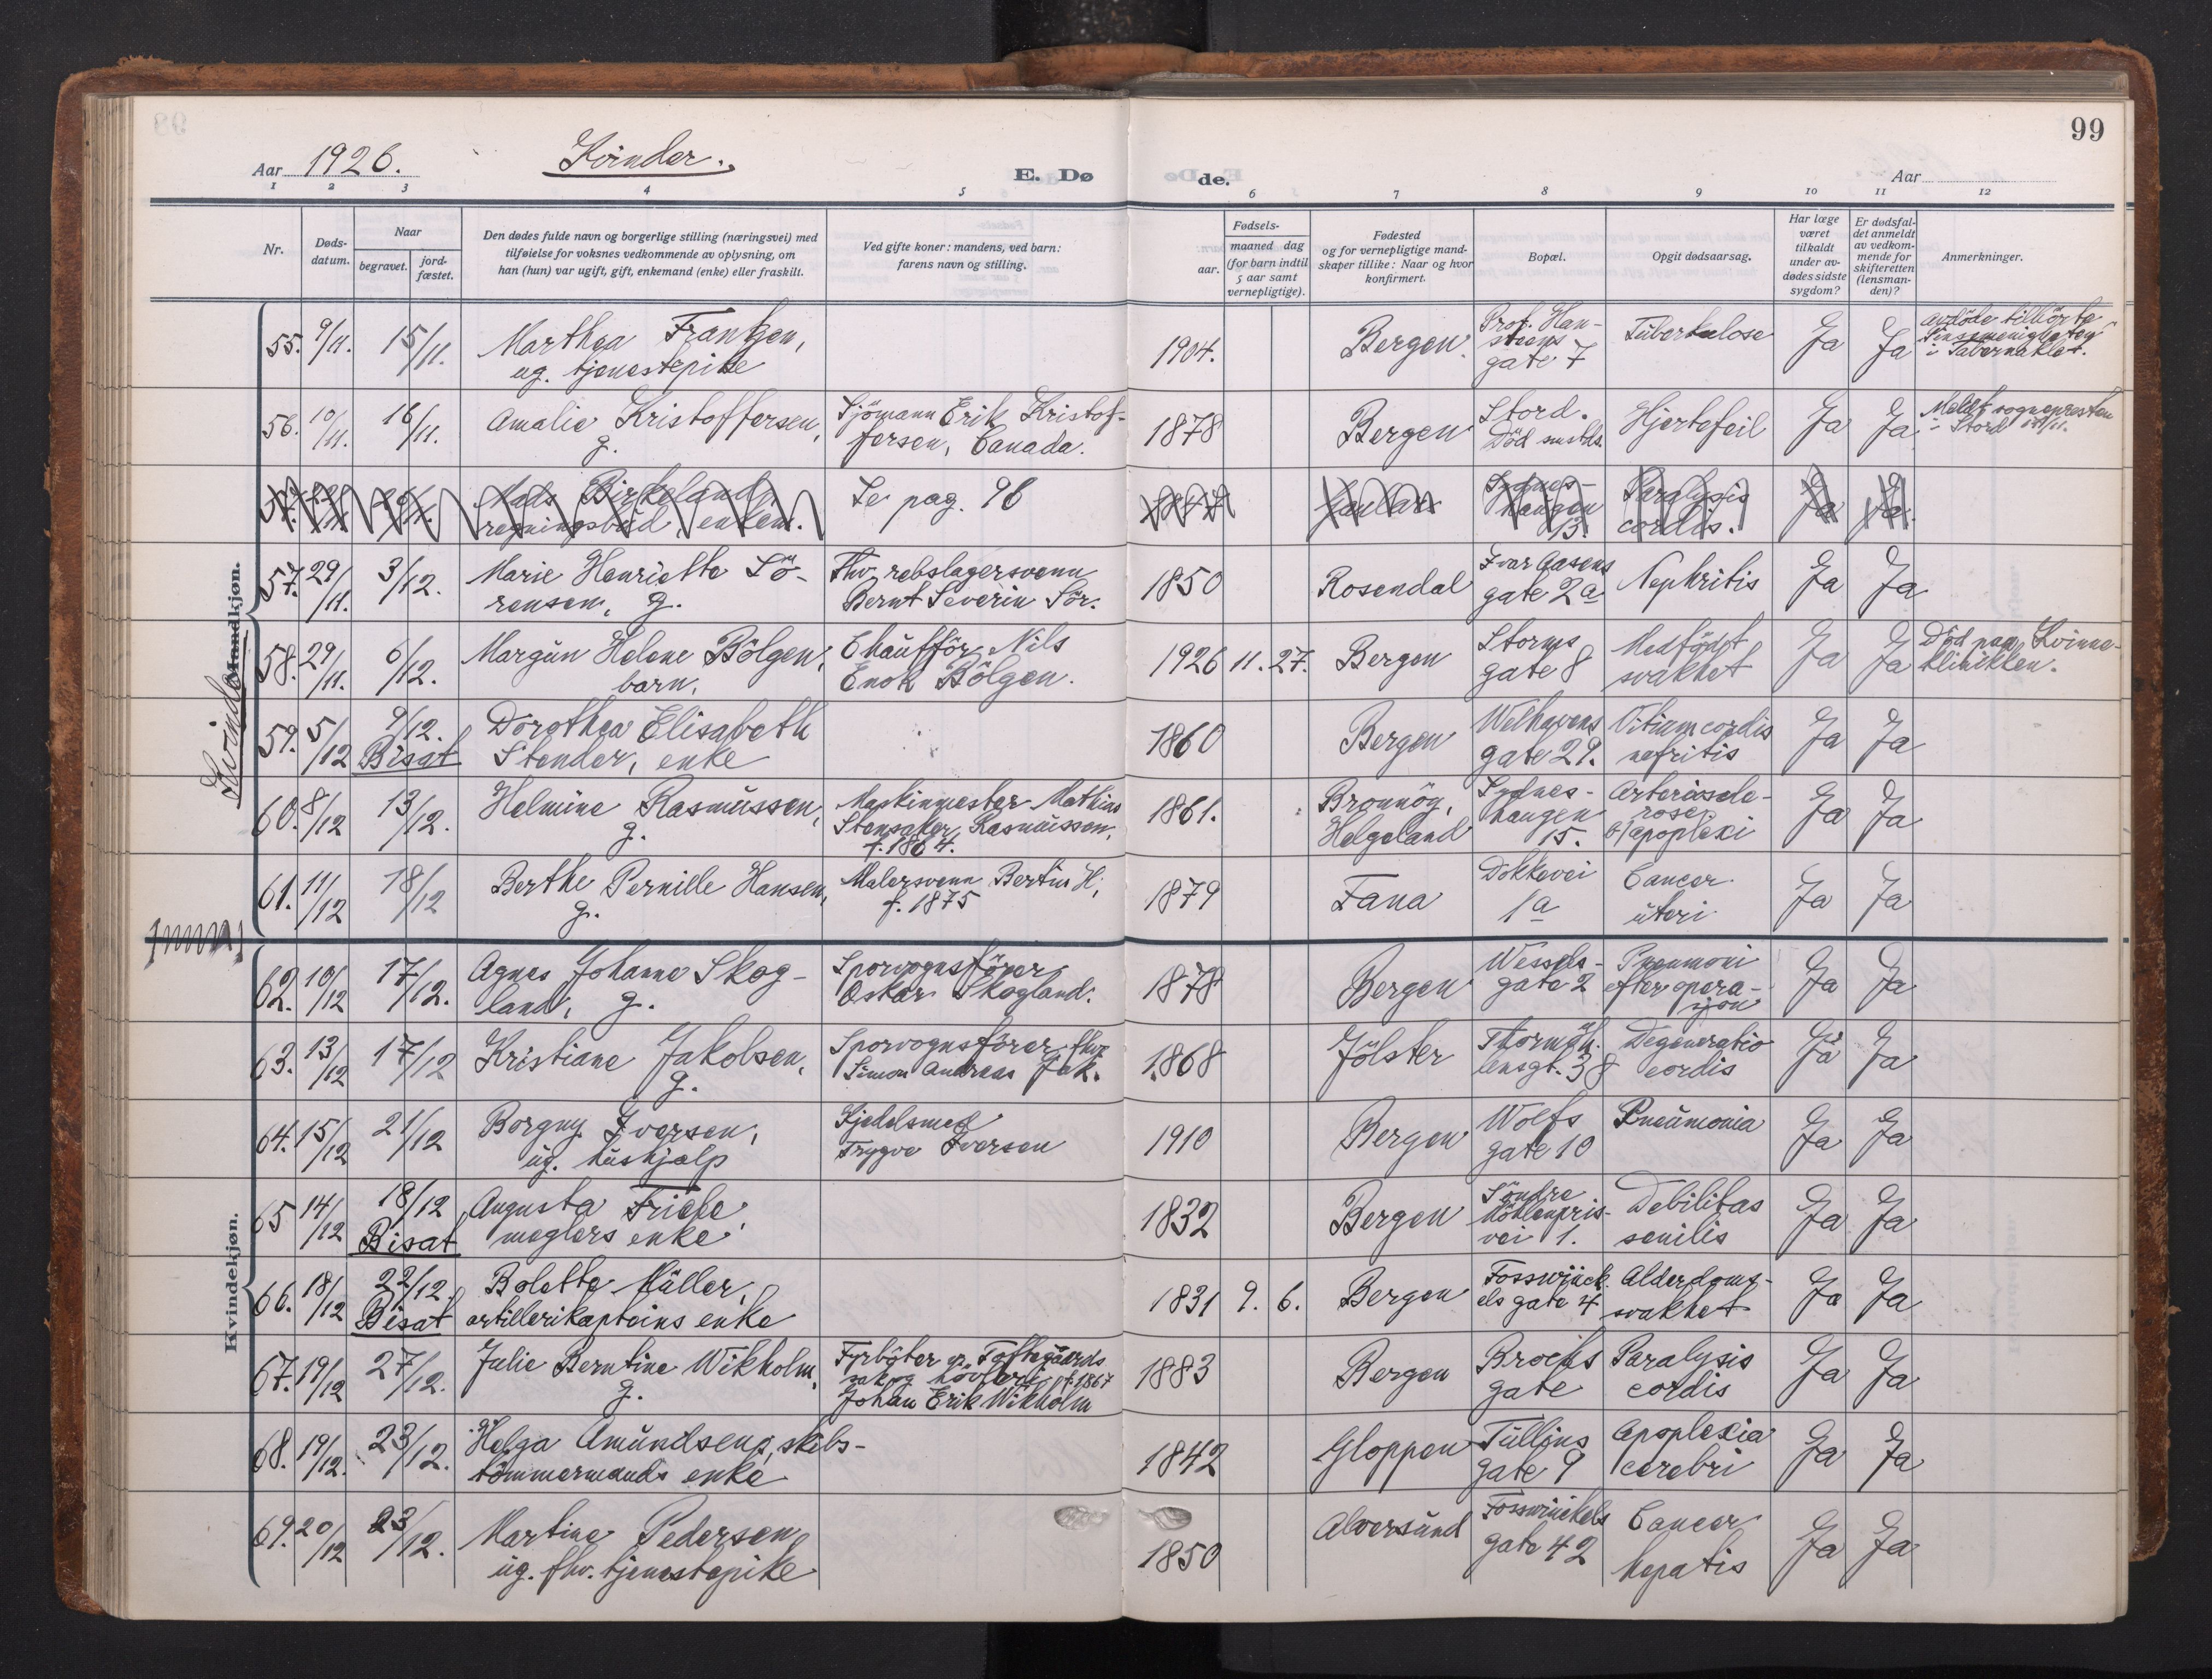 99
Aar 1926. Kvinder. E. Døde. Aar
1 2 3 4 5 6 7 8 9 10 11 12
Nr. Døds-datum. Naar begravet. jord-fæstet. Den dødes fulde navn og borgerlige stilling (næringsvei) med tilføielse for voksnes vedkommende av oplysning, om han (hun) var ugift, gift, enkemand (enke) eller fraskilt. Ved gifte koner: mandens, ved barn: farens navn og stilling. Fødsels- aar. maaned dag (for barn indtil 5 aar samt vernepligtige). Fødested og for vernepligtige mand-skaper tillike: Naar og hvor konfirmert. Bopæl. Opgit dødsaarsag. Har læge været tilkaldt under av-dødes sidste sygdom? Er dødsfal-det anmeldt av vedkom-mende for skifteretten (lensman-den)? Anmerkninger.
Mandkjøn.
Kvinder
Kvindekjøn.
55. 9/11. 15/11. Marthea Frantzen, ug. tjenestepike 1904. Bergen. Prof. Han-steens gate 7 Tuberkulose Ja Ja avdöde tilhörte i Tabernaklet.
56. 10/11. 16/11. Amalie Kristoffersen, g. Sjömann Erik Kristof-fersen, Canada. 1878 Bergen Stord. Död smstds. Hjertefeil Ja Ja Meldt sognepresten i Stord
Mads Birkeland regningsbud, enkem. Se pag. 96 Sydnes-haugen 13. Paralysis cordis. Ja Ja.
57. 29/11. 3/12. Marie Henriette Sö-rensen, g. Fhv. rebslagersvenn Bernt Severin Sör. 1850 Rosendal Ivar Aasens gate 2a Nephritis Ja Ja
58. 29/11. 6/12. Margun Helene Bölgen, barn. Chaufför Nils Enok Bölgen. 1926 11. 27. Bergen Storms gate 8 Medfödt svakhet Ja Ja Död paa Kvinne-klinikken.
59. 5/12 9/12. Bisat Dorothea Elisabeth Stender, enke 1860 Bergen Welhavens gate 29. Vitium cordis nefritis Ja Ja
60. 8/12 13/12. Helmine Rasmussen, g. Maskinmester Mathias Stensaker Rasmussen, f. 1864. 1861. Bronnöy, Helgeland Sydnes-haugen 15. Arterioscle-rose, apoplexi Ja Ja
61. 11/12 18/12 Berthe Pernille Hansen, g. Malersvenn Bertin H, f. 1875 1879 Fana Dokkevei 1a Cancer uteri Ja Ja
62. 10/12 17/12. Agnes Johanne Skog-land, g. Sporvognsförer Oskar Skogland. 1878 Bergen Wessels-gate 2 Pneumoni efter opera-sjon Ja Ja
63. 13/12 17/12 Kristiane Jakobsen, g. Sporvognsförer fhv Simon Andreas Jak. 1868 Jölster Thormöh-lensgt. 38 Degeneratio cordis Ja Ja
64. 15/12 21/12 Borgny Iversen, ug. hushjælp Kjedelsmed Trygve Iversen 1910 Bergen Wolfs gate 10 Pneumonia Ja Ja
65 14/12 18/12 Bisat Augusta Friele, meglers enke 1832 Bergen Söndre Möhlenpris-vei 1. Debilitas senilis Ja Ja
66. 18/12 22/12. Bisat Bolette Müller, artillerikapteins enke 1831 9. 6. Bergen Fosswinck-els gate 4 Alderdoms-svakhet Ja Ja
67. 19/12 27/12. Julie Berntine Wikholm, g. Fyrböter v. Toftegaards sak og hövleri, f. 1867 Johan Erik Wikholm 1883 Bergen Brochs gate Paralysis cordis Ja Ja
68. 19/12. 23/12. Helga Amundsen, skibs-tömmermands enke 1842 Gloppen Tullins gate 9 Apoplexia cerebri Ja Ja
69. 20/12 23/12. Martine Pedersen ug. fhv. tjenestepike 1850 Alversund Fosswinckels gate 42 Cancer hepatis Ja Ja